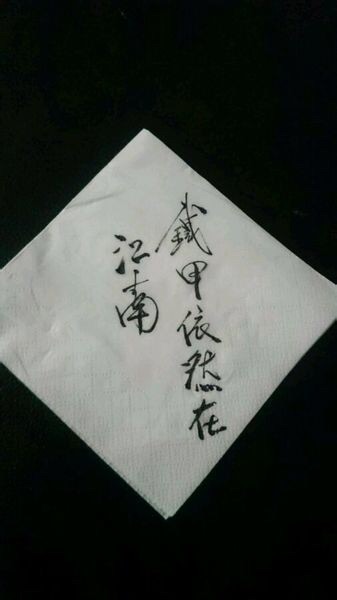 鐵甲依然在
江南